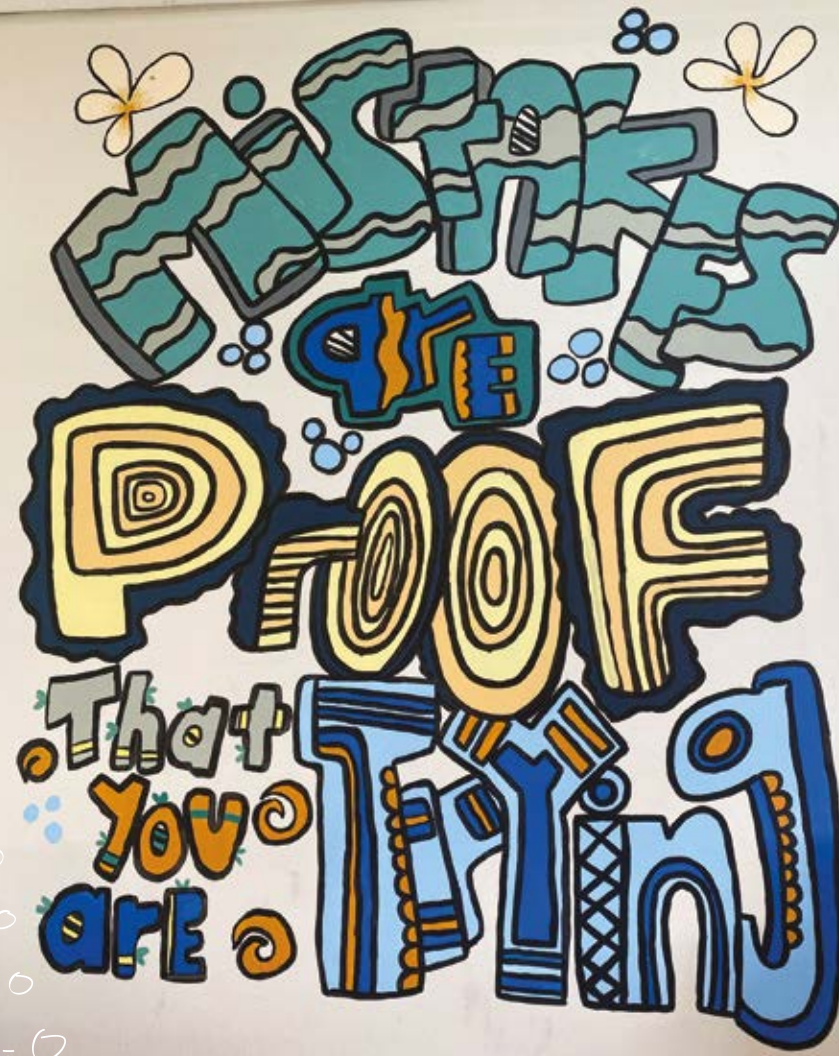 MiSTAKES
are
ProoF
That
You
arE
TRYing